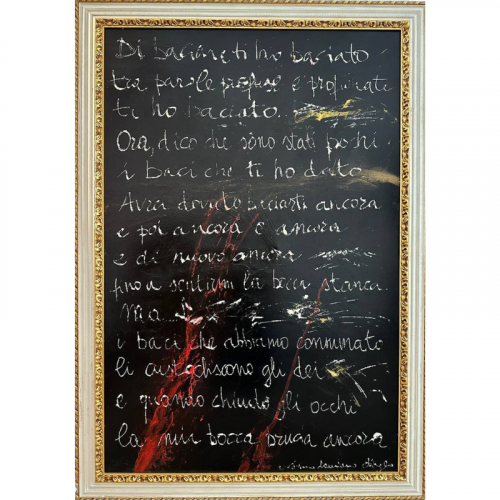 Di baciare ti ho baciato
tra parole profuse e profumate
ti ho baciato.
Ora, dico che sono stati pochi
i baci che ti ho dato
Avrei dovuto baciarti ancora
e poi ancora e ancora
e di nuovo ancora
fino a sentirmi la bocca stanca.
Ma
i baci che abbiamo consumato
li custodiscono gli dei
e quando chiudo gli occhi
la mia bocca brucia ancora